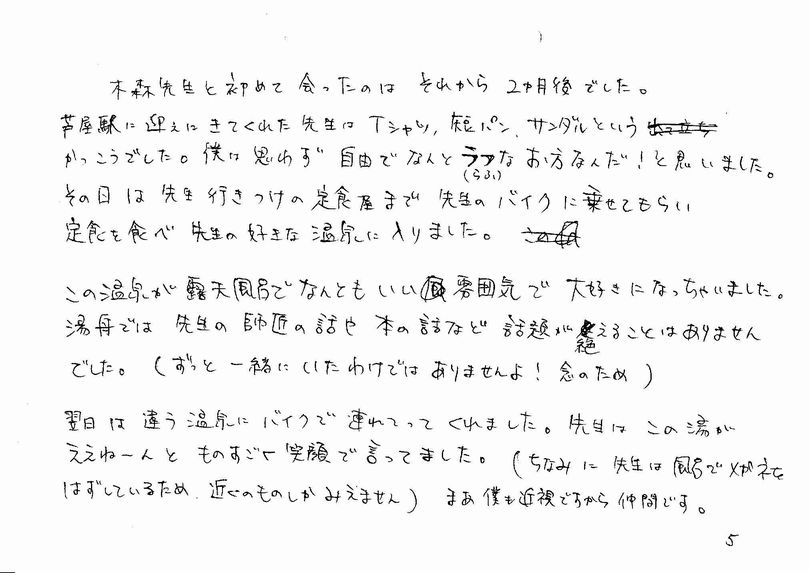 木森先生と初めて会ったのは それから 2ヵ月後でした。
芦屋駅に迎えにきてくれた先生はTシャツ、短パン、サンダルという 出で立ち
かっこうでした。僕は思わず 自由でなんとラフなお方なんだ!と思いました。
(らふい)
その日は先生行きつけの定食屋まで 先生のバイクに乗せてもらい
定食を食べ 先生の好きな温泉に入りました。 この
この温泉が露天風呂でなんともいい雰囲気で 大好きになっちゃいました。
湯舟では 先生の師匠の話や本の話など 話題が絶えることはありません
でした。(ずっと一緒にいたわけではありませんよ!念のため)
翌日は違う温泉にバイクで連れてってくれました。先生はこの湯が
ええねーんと ものすごく笑顔で言ってました。(ちなみに 先生は風呂でメガネを
はずしているため、近くのものしかみえません) まあ僕も近視ですから仲間です。
5